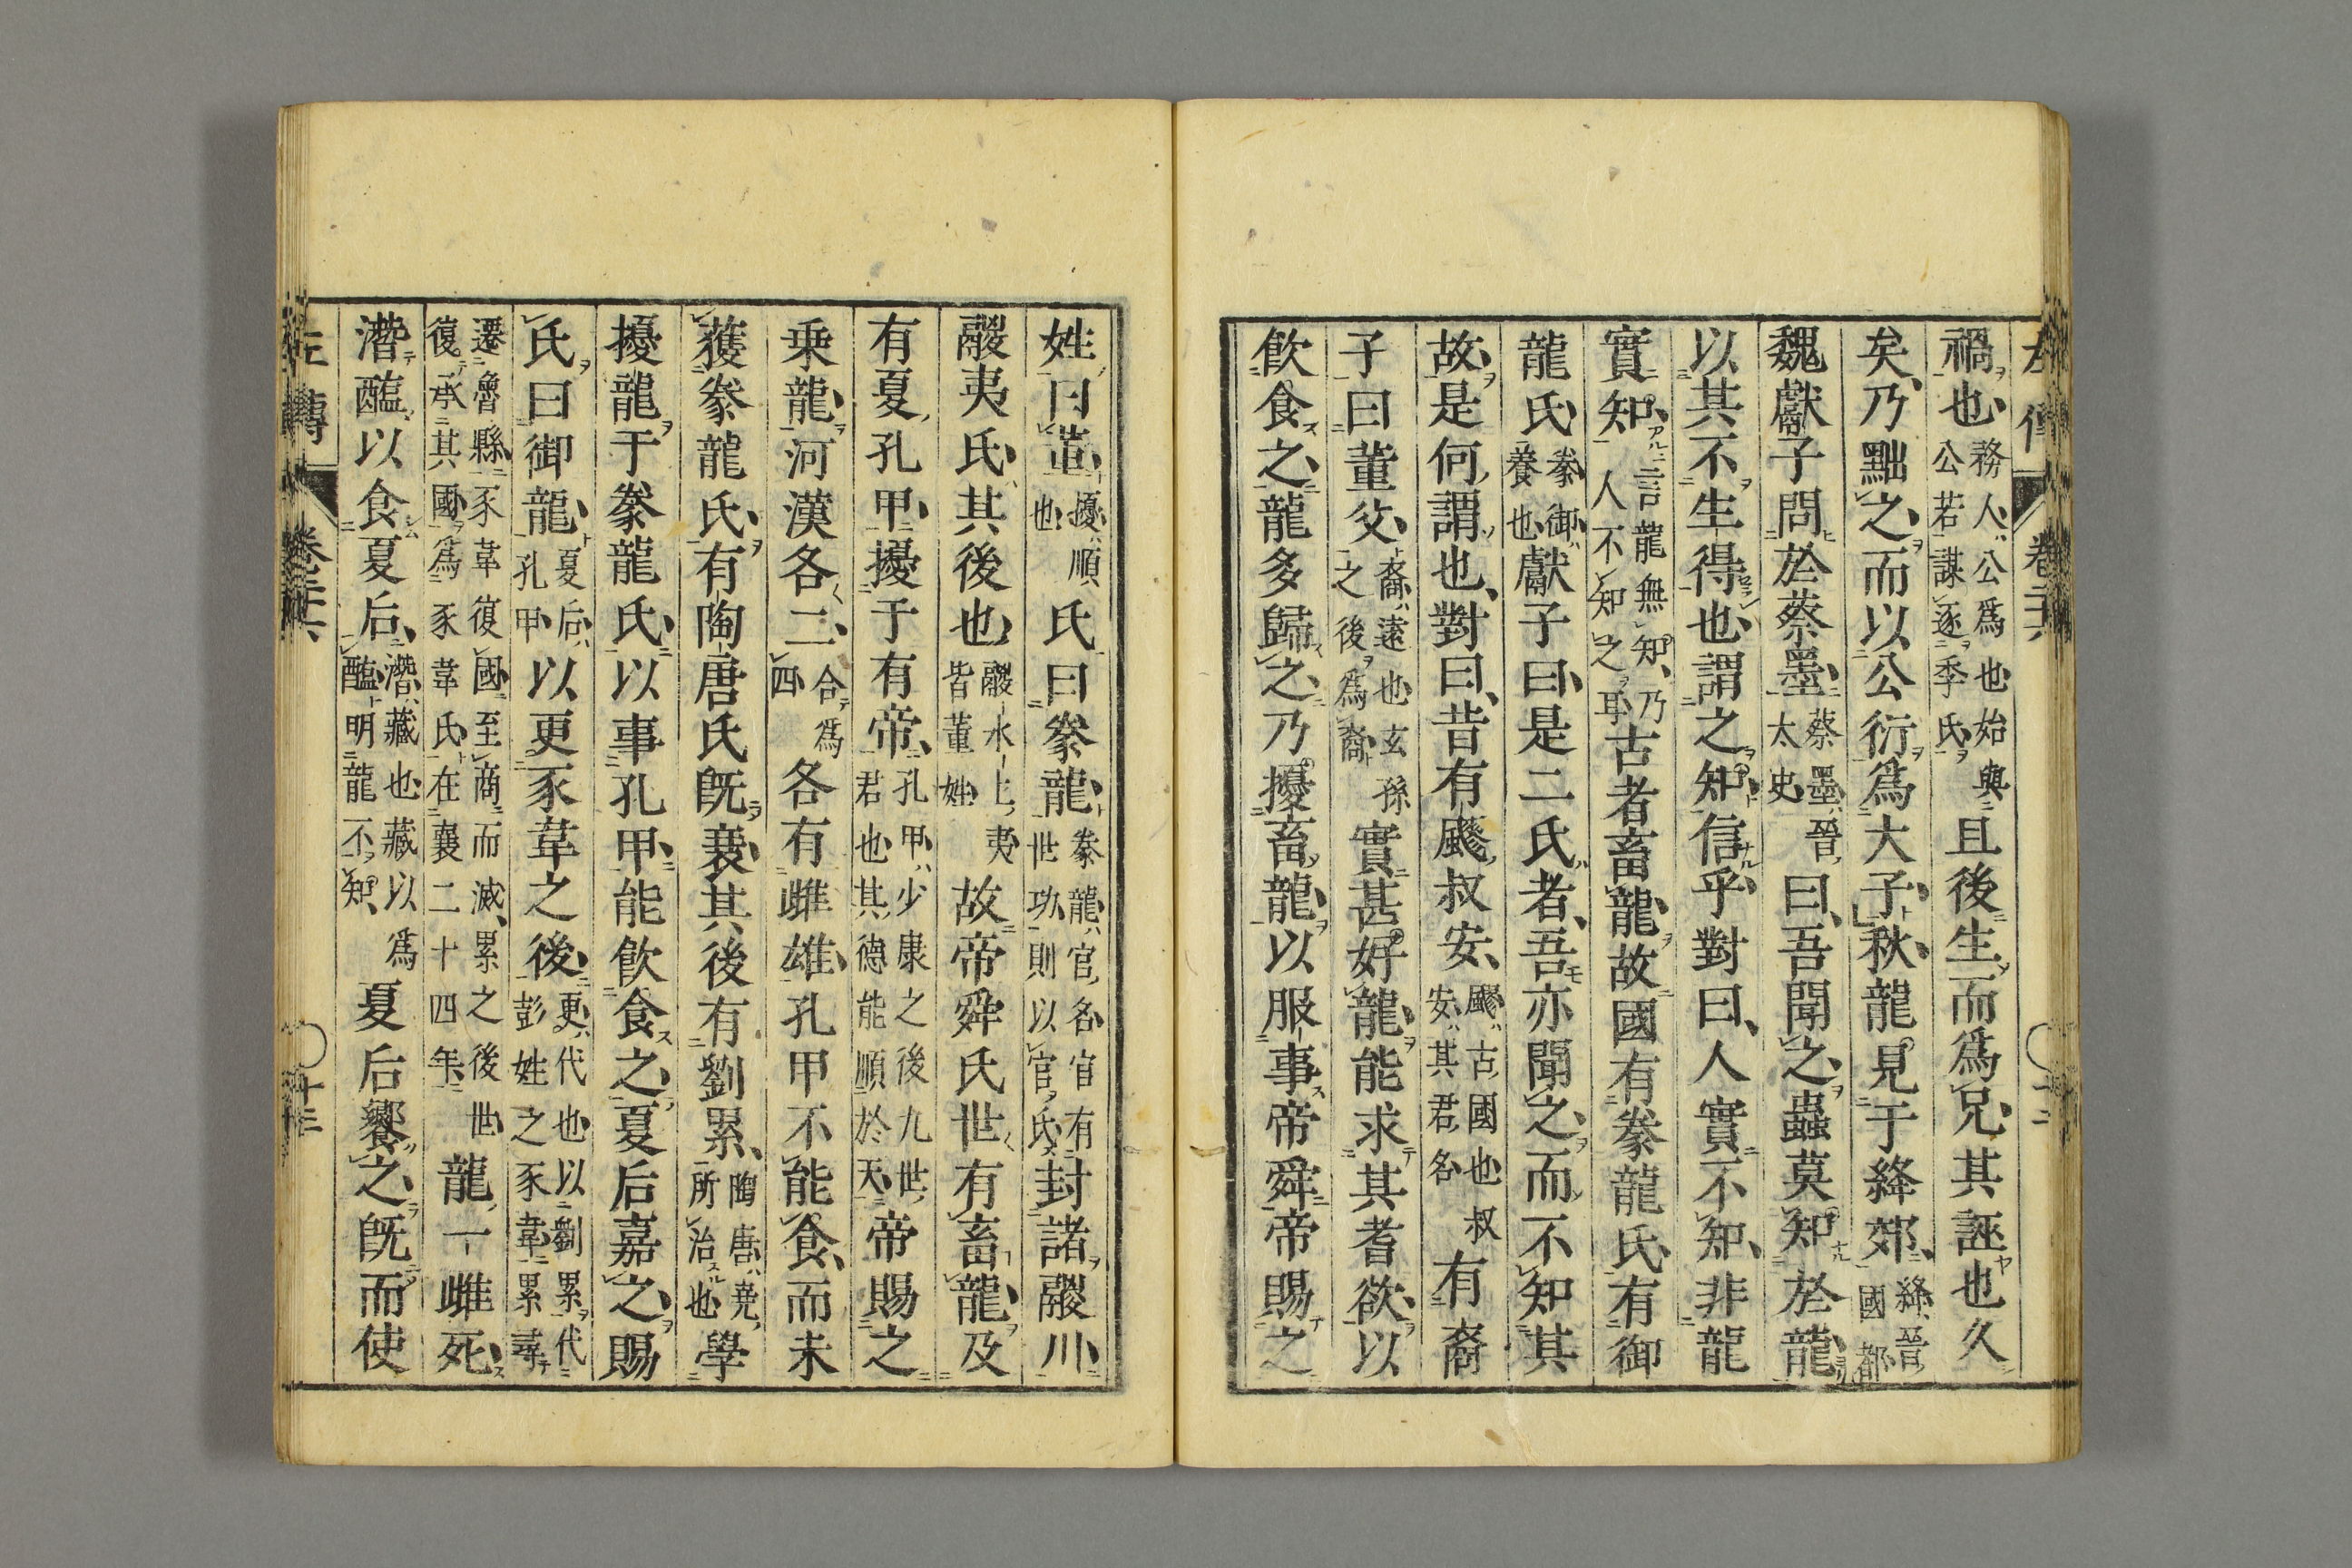 禍也務人公爲也始與公若謀逐季氏且後生而爲兄其誣也久
矣乃黜之而以公衍爲大子秋龍見于絳郊絳晉國都
魏獻子問於蔡墨蔡墨晉太史曰吾聞之蟲莫知於龍
以其不生得也謂之知信乎對曰人實不知非龍
實知言龍無知乃人不知之耳古者畜龍故國有豢龍氏有御
龍氏豢御養也獻子曰是二氏者吾亦聞之而不知其
故是何謂也對曰昔有飂叔安飂古國也叔安其君名有裔
子曰董父裔遠也玄孫之後爲裔實甚好龍能求其耆欲以
飲食之龍多歸之乃擾畜龍以服事帝舜帝賜之
姓曰董擾順也氏曰豢龍豢龍官名官有世功則以官氏封諸鬷川
鬷夷氏其後也鬷水上夷皆董姓故帝舜氏世有畜龍及
有夏孔甲擾于有帝孔甲少康之後九世君也其德能順於天帝賜之
乗龍河漢各二合爲四各有雌雄孔甲不能食而未
獲豢龍氏有陶唐氏既衰其後有劉累陶唐堯所治也學
擾龍于豢龍氏以事孔甲能飲食之夏后嘉之賜
氏曰御龍夏后孔甲以更豕韋之後更代也以劉累代彭姓之豕韋累尋
遷魯縣豕韋復國至商而滅累之後世復承其國爲豕韋氏在襄二十四年龍一雌死
潛醢以食夏后潛藏也藏以爲醢明龍不知夏后饗之既而使
左傳 卷二十六 十三